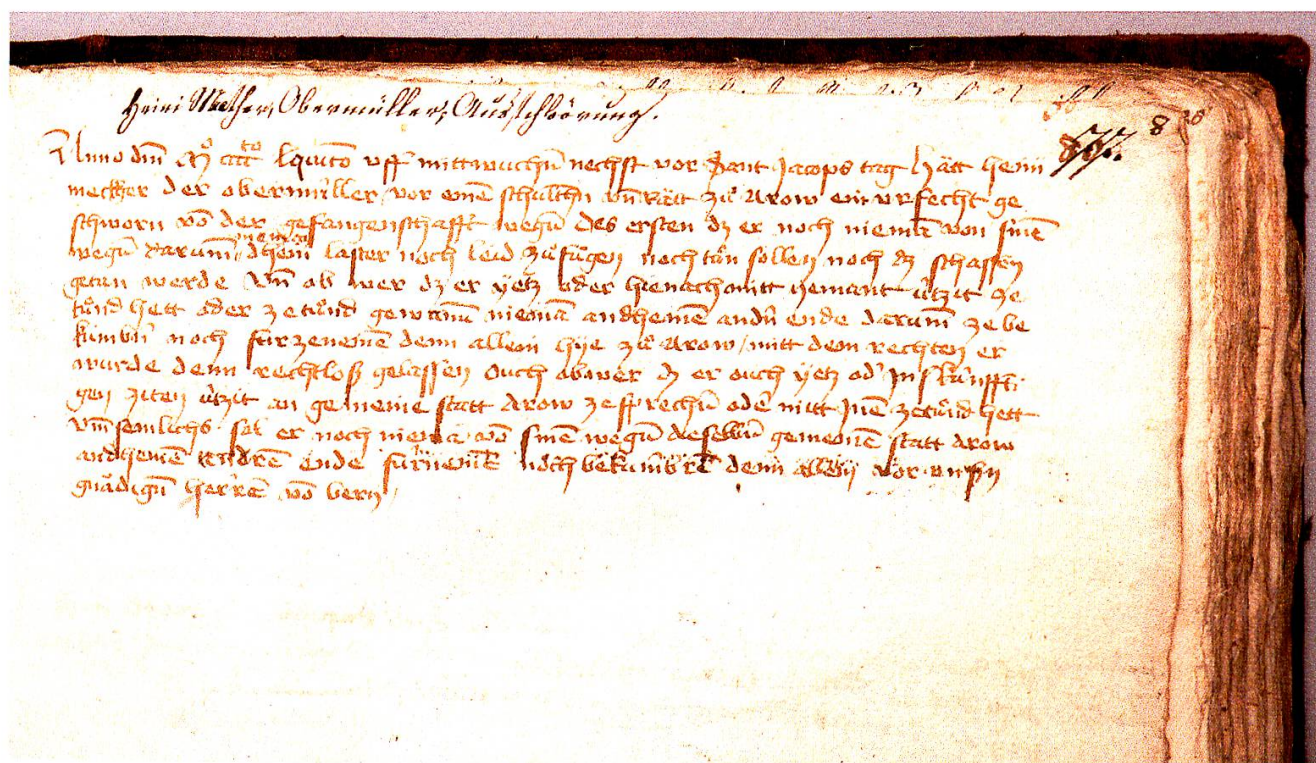 Heini Mether, Obermüllers, Ausschwörung.
577. 8
Anno dm̄ Mº cccc to lquīto vff mittwuchen nechst vor Sant Jacops tag hätt heini
mecher der obermúller / vor einē schulthn vn̄ Rätt zů Arow ein vrfecht ge
schworn vō der gefangenschafft wegn̄ des ersten dz er noch niemā von sinē
wegn̄ darum̄ niemā dhein laster noch leid zůfůgen noch tůn sollen noch dz schaffen
getan werde Vn̄ ob wer dz er yetz oder hienach mitt yemant ützit ze
tůnd hett oder ze tůnd gewunn niemā andhemē andn̄ ende darum̄ ze be
kúmbrn̄ noch fúrzenemē denn allein hye zů Arow / mitt dem rechten er
wurde denn rechtloß gelassen Ouch ob wer dz er ouch yetz od' In kúnffti
gen ziten ützit an gemeine statt Arow zesprechn̄ oder mitt Inē zetůnd hett
vm̄ semlichs sol er noch niemā vō sinē wegn̄ dieselbn̄ gemeinē statt Arow
andhemē endrē ende fúrnemē noch bekúmbrē denn allein vor mijn
gnädign̄ herrē vō bern /